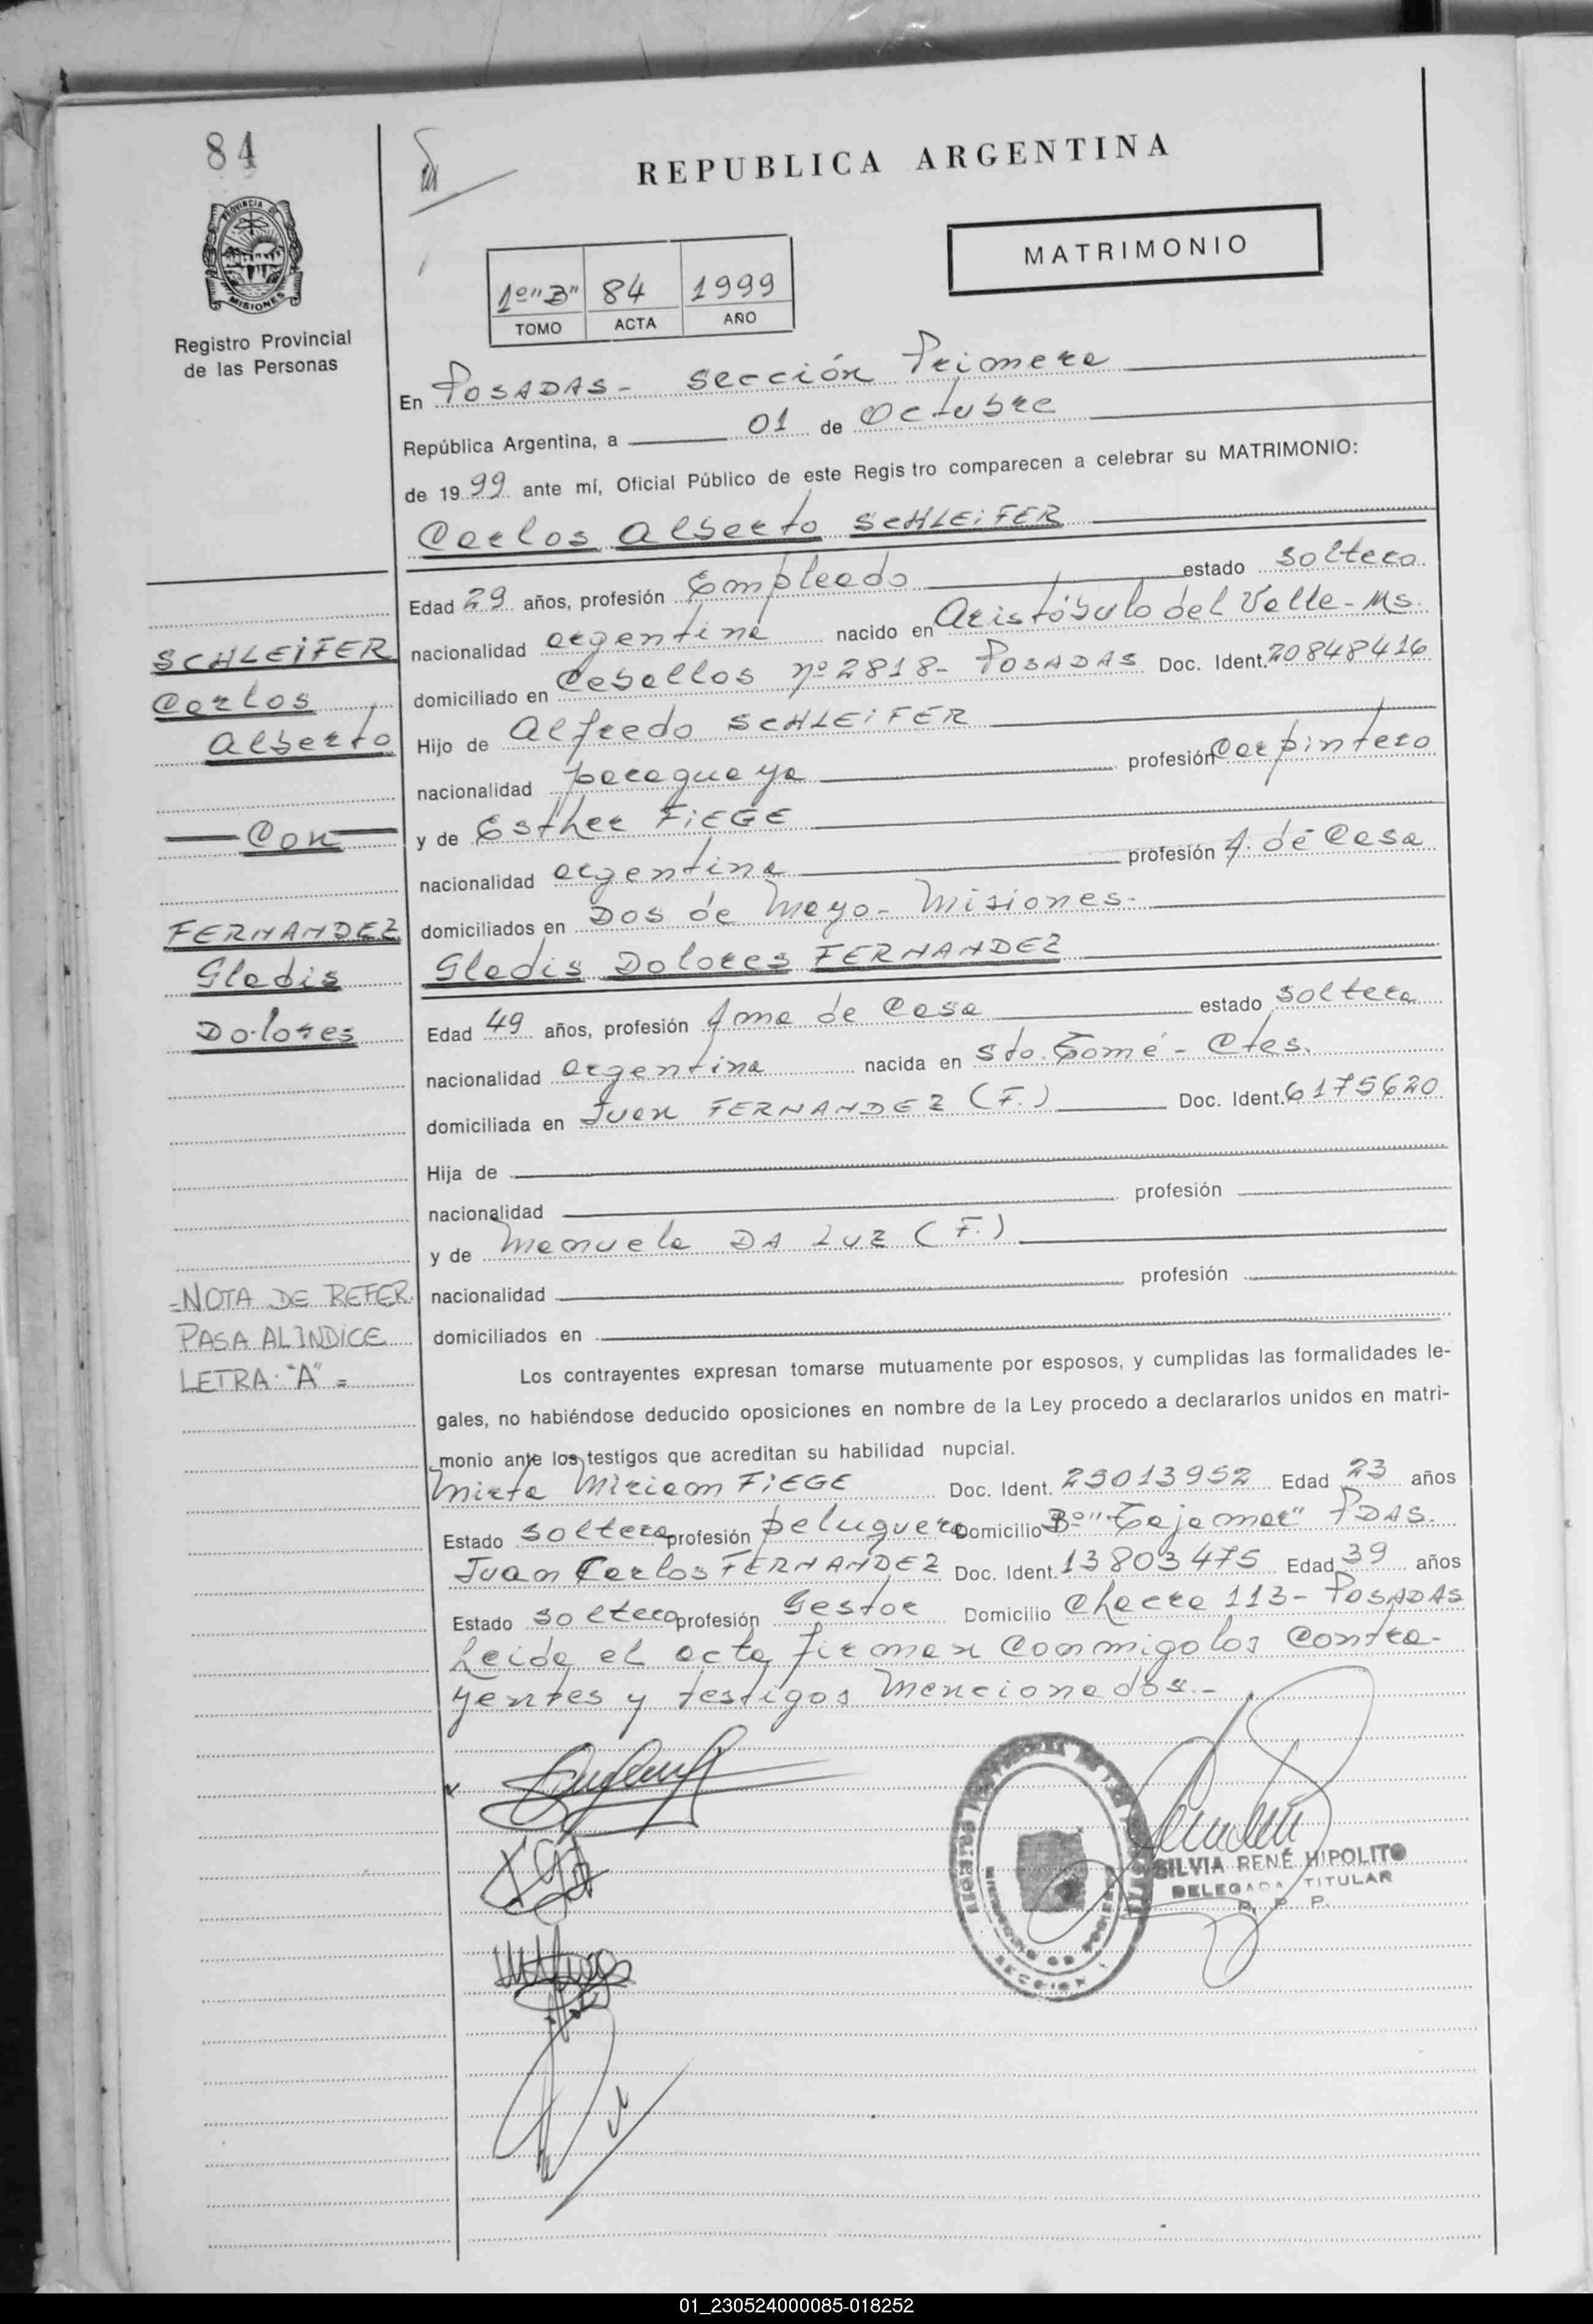 84
REPUBLICA ARGENTINA
MATRIMONIO
PROVINCIA DE
MISIONES
Registro Provincial
de las Personas
1º "B" 84 1999
TOMO ACTA AÑO
En POSADAS - sección Primera
República Argentina, a 01 de Octubre
de 1999 ante mí, Oficial Público de este Regis tro comparecen a celebrar su MATRIMONIO:
Carlos Alberto SCHLEiFER
Edad 29 años, profesión Empleado estado soltero
nacionalidad argentina nacido en Aristóbulo del Valle - Ms.
domiciliado en Ceballos nº 2818 - POSADAS Doc. Ident. 20848416
Hijo de Alfredo SCHLEiFER
nacionalidad paraguaya profesión Carpintero
y de Esther FiEGE
nacionalidad argentina profesión A. de Casa
domiciliados en Dos de Mayo - Misiones -
Gladis Dolores FERNANDEZ
Edad 49 años, profesión Ama de Casa estado soltera
nacionalidad argentina nacida en Sto. Tomé - Ctes.
domiciliada en Juan FERNANDEZ (F.) Doc. Ident. 6175620
Hija de
nacionalidad profesión
y de Manuela DA LUZ (F.)
nacionalidad profesión
domiciliados en
Los contrayentes expresan tomarse mutuamente por esposos, y cumplidas las formalidades le-
gales, no habiéndose deducido oposiciones en nombre de la Ley procedo a declararlos unidos en matri-
monio ante los testigos que acreditan su habilidad nupcial.
Mirta Miriam FiEGE Doc. Ident. 25013952 Edad 23 años
Estado soltera profesión peluquera Domicilio Bº "Tajamar" PDAS.
Juan Carlos FERNANDEZ Doc. Ident. 13803475 Edad 39 años
Estado soltero profesión Gestor Domicilio Chacra 113 - POSADAS
Leida el acta firman conmigo los contra-
yentes y testigos mencionados.-
SCHLEiFER
Carlos
Alberto
Con
FERNANDEZ
Gladis
Dolores
=NOTA DE REFER.
PASA AL INDICE
LETRA "A" =
SECCION 1
SILVIA RENÉ HIPOLITO
DELEGADA TITULAR
R. P. P.
01_230524000085-018252